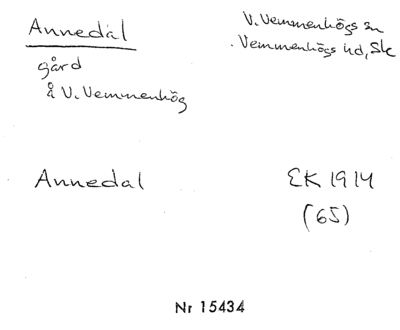 Annedal
V. Vemmenhögs sn
Vemmenhögs hd, Sk
gård
å V. Vemmenhög
Annedal
EK 1914
(65)
Nr 15434